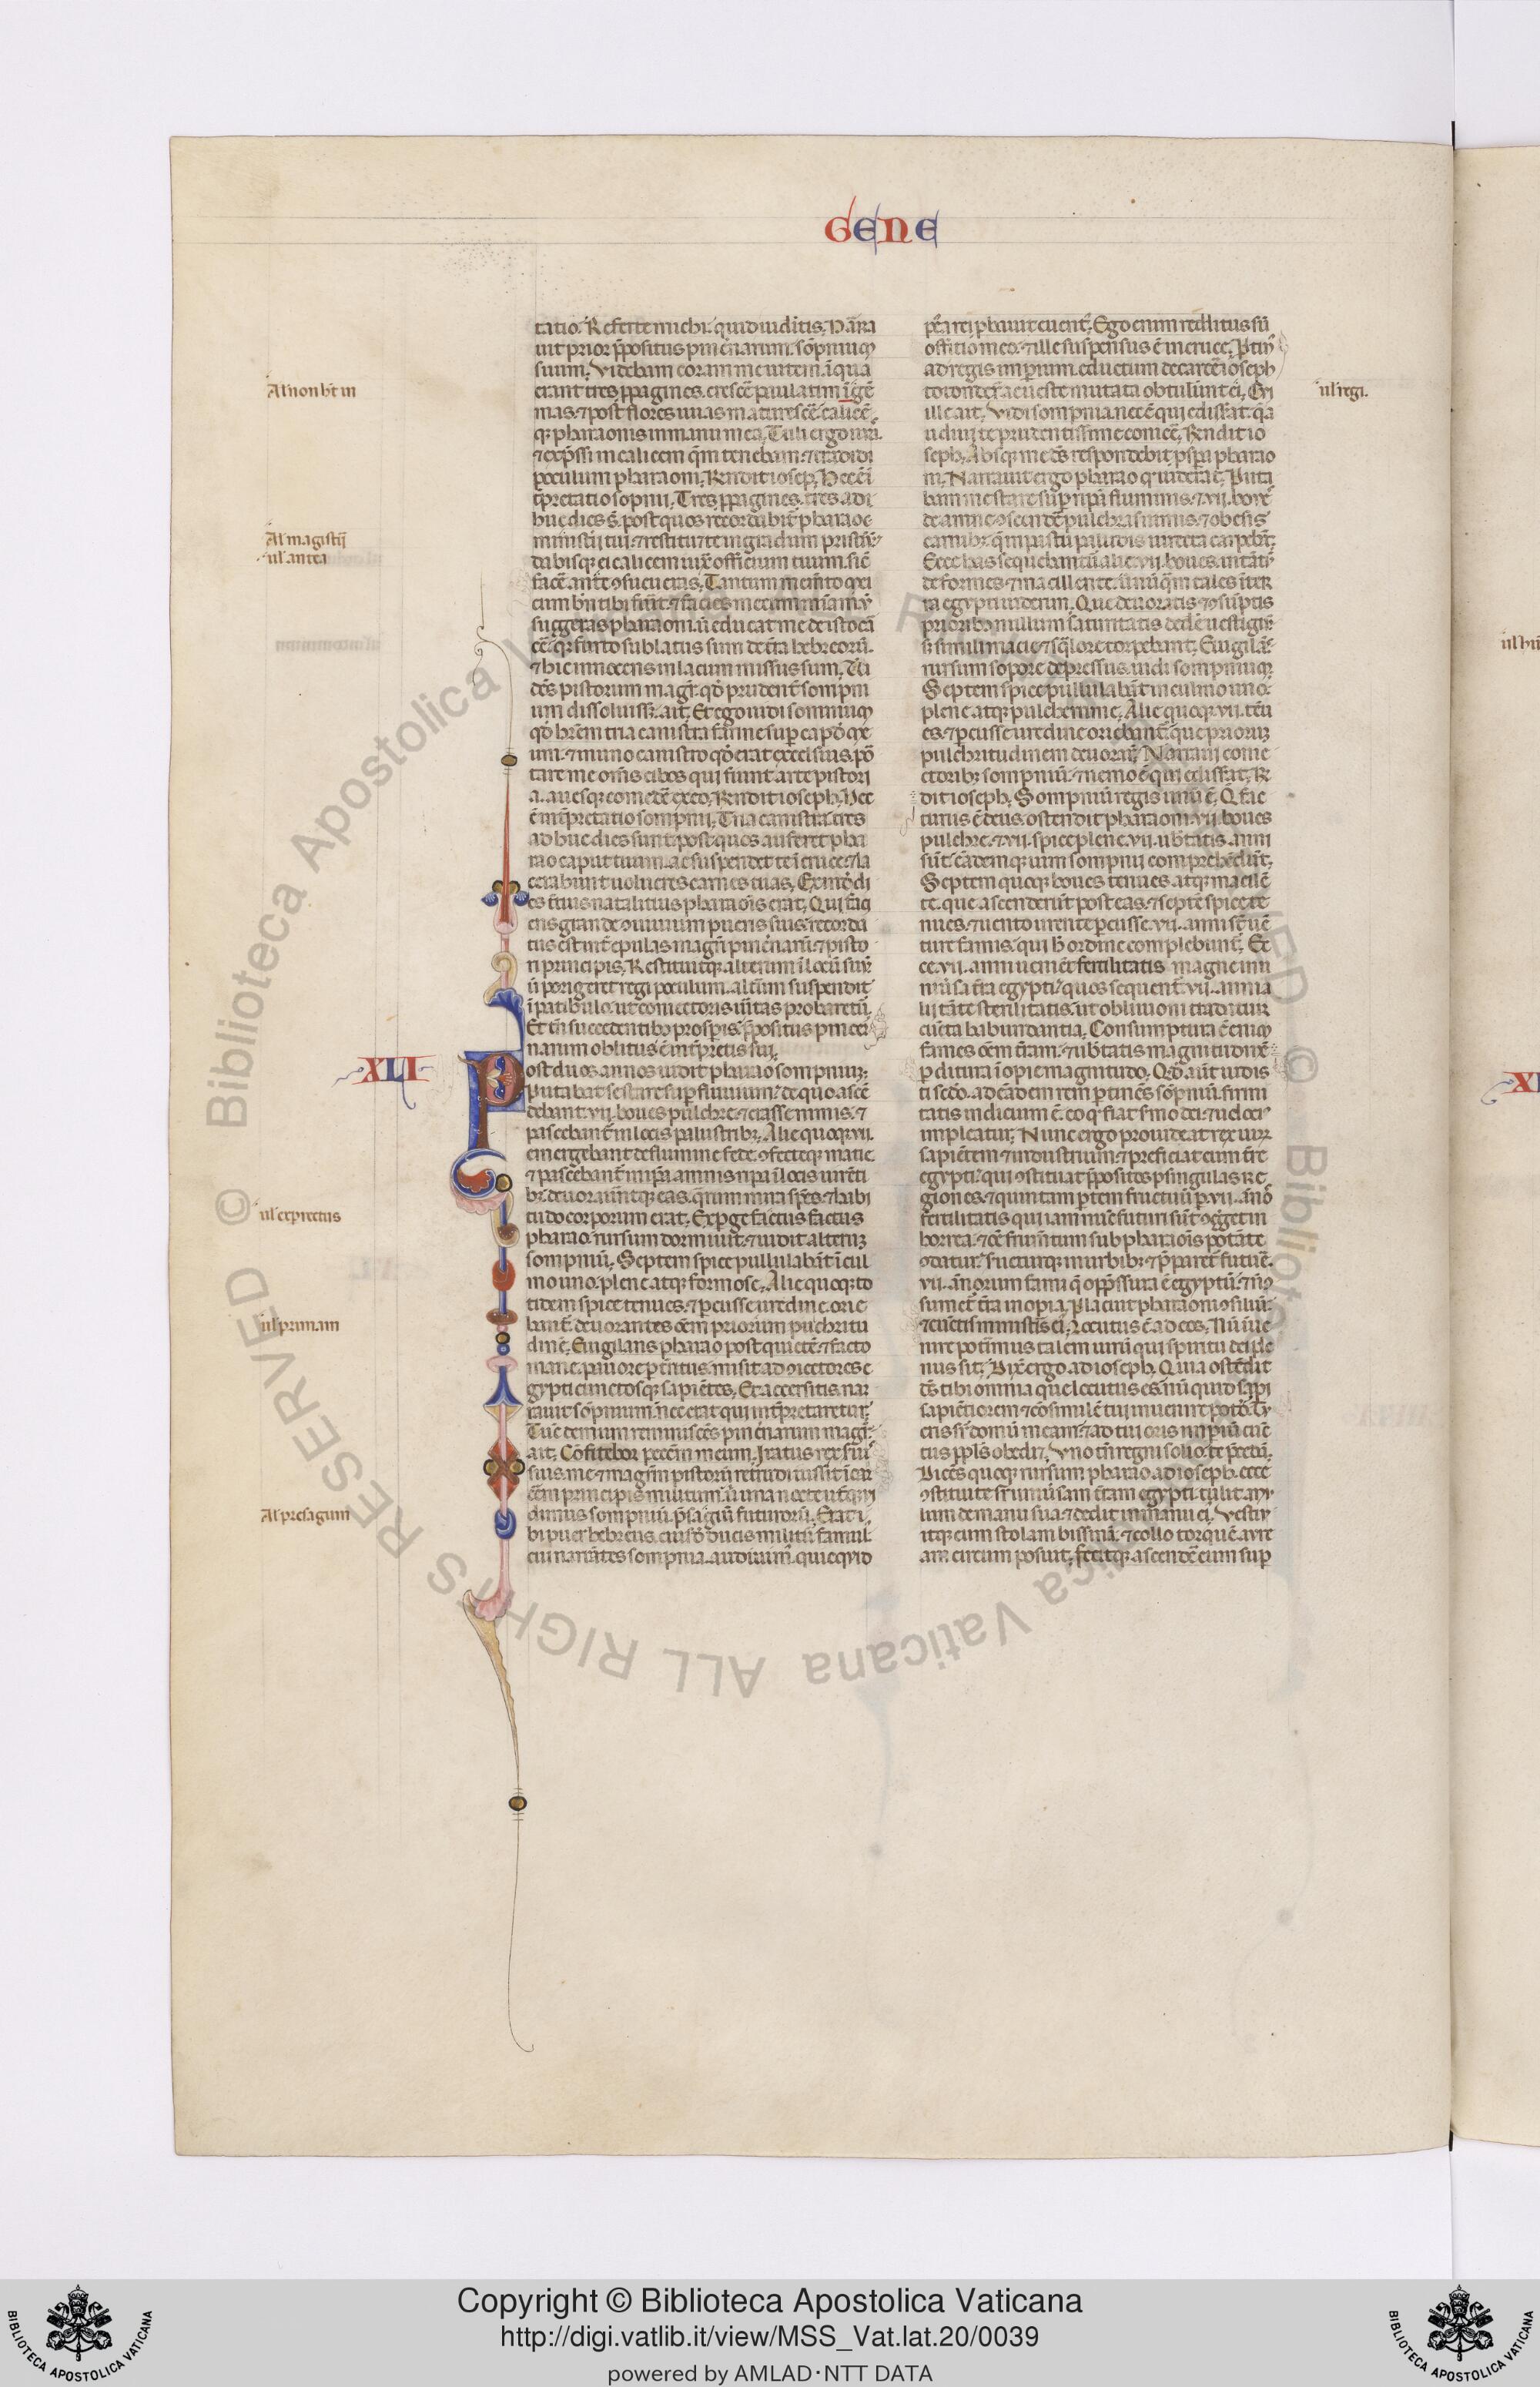 GENE
tatio. Referte michi. quid uiditis. Narra
uit prior p̄positus pincernarum. sōpnium
suum. Videbam coram me uitem. in qua
erant tres ppagines. crescē paulatim ī gē
mas. ⁊ post flores uuas maturescē. calicē
qꝫ pharaonis in manu mea. Tuli ergo uuas.
⁊ exp̄ssi in calicem q̄m tenebam. ⁊ tradidi
poculum pharaoni. Rendit ioseph. Hec ē ī
tꝑretatio sopnii. Tres ppagines. tres adi
huc dies s̄. post quos recordabit̄ pharao
ministīj tui. ⁊ restituet te in gradum pristinū
dabisqꝫ ei calicem iux̄ officium tuum. sic̄
facē ante ɔsueueras. Tantum memento mei
cum bn̄ tibi fu̅it. ⁊ facies mecum mīam. ut
suggeras pharaoni. ut educat me de isto car
cē. qꝫ furto sublatus sum de tr̄a hebreorū.
⁊ hic innocens in lacum missus sum. Vi
dēs pistorum magr̄. qd̄ prudent̄ sompni
um dissoluissꝫ. ait. Et ego uidi somnium
qd̄ hr̄em tria canistra farine super caput me
um. ⁊ in uno canistro qd̄ erat excelsius. por
tare me om̄s cibos qui fiunt arte pistori
a. auesqꝫ comedē ex eo. Rendit ioseph. Hec
ē int̄pretatio sompnii. Tria canistra. tres
adhuc dies sunt. post quos auferet pha
rao caput tuum. ac suspendet te ī cruce. ⁊ la
cerabunt uolucres carnes tuas. Exinde di
es t̄tius natalitius pharaonis erat. Qui faci
ens grande ɔuiuium pueris suis. recorda
tus est int̄ epulas magr̄i pincernarū. ⁊ pisto
ri principis. Restituitqꝫ alterum ī locū suū.
ut porrigeret regi poculum. altūm suspendit
ī patibulo. ut coniectoris u̅itas probaret̄.
Et tn̄ succedentibꝫ prosꝑis. p̄positus pincer
narum oblitus ē int̄pretis sui.
XLI
Post duos annos uidit pharao sompnium.
Putabat se stare suꝑ fluuium. de quo ascē
debant .vii. boues pulchre. ⁊ crasse nimis. ⁊
pascebant̄ in locis palustribꝫ. Alie quoqꝫ .vii.
emergebant de flumine fede. ɔfecteqꝫ macie
⁊ pascebant̄ in ip̄a amnis ripa ī locis uirēti
bꝫ. deuorauntqꝫ eas. quarum mira sp̄es. ⁊ habi
tudo corporum erat. Expergefactus factus
pharao. rursum dormiuit. ⁊ uidit alterum
sompniū. Septem spice pullulabāt ī cul
mo uno. plene atqꝫ formose. Alie quoqꝫ to
tidem spice tenues. ⁊ percusse uredine. orie
bant̄. deuorantes oēm priorum puchritu
dinē. Euigilans pharao post quietē. ⁊ facto
mane. pauore ꝑt̄ritus. misit ad ɔiectores e
gypti cunctosqꝫ sapiētes. Et accersitis nar
rauit sōpnium. nec erat qui int̄pretaretur.
Tunc demum reminiscēs pincernarum magr̄.
ait. Cōfitebor peccm̄ meum. Iratus rex seruis
suis. me. ⁊ magr̄m pistorū retrudi iussit ī car
cēm principis militum. ubi una nocte utqꝫ
uidimus sompniū. p̄sagiū futurorū. Erat i
bi puer hebreus. eiusdē ducis militū famul̄.
cui narrātes sompnia. audiuim̄. quicquid
p̄ea rei ꝓbauit euent̄. Ego enim redditus sū
officio meo. ⁊ ille suspensus ē in cruce. Protin̄
ad regis impium. eductum de carcē ioseph
totonderūt. ac ueste mutata obtulūnt ei. Cui
ille ait. Vidi sompnia. nec ē qui edissat. que
audiui te prudentissime conicē. Rendit io
seph. Absqꝫ me ds̄ respondebit ꝓsꝑa pharao
ni. Narrauit ergo pharao qd̄ uiderat. Puta
bam me stare super ripā fluminis. ⁊ .vii. boues
de amne ɔscendē. pulchras nimis. ⁊ obesis
carnibꝫ. que in pastu paludis uirecta carpebāt.
Ecce has sequebantur alie .vii. boues. intātū
deformes. ⁊ macillente. ut nunqꝫ tales in ter
ra egypti uiderim. Que deuoratis ⁊ ɔsūptis
prioribꝫ nullum saturitatis dedē uestigiū.
s; simili macie ⁊ sqlore torpebant. Euigilās
rursum sopore depressus. uidi sompnium.
Septem spice pullulabāt in culmo uno
plene atqꝫ pulcherrime. Alie quoqꝫ .vii. tenu
es. ⁊ percusse uredine oriebant̄. que priorum
pulchritudinem deuorarūt. Narraui conie
ctoribꝫ sompniū. ⁊ nemo ē qui edissat. Ren
dit ioseph. Sompniū regis unū ē. Que fac
turus ē deus ostendit pharaoni. vii. boues
pulchre. ⁊ .vii. spice plene .vii. ub̄tatis anni
sūt. eādemqꝫ uim sompnii comprehēdūt.
Septem quoqꝫ boues tenues. atqꝫ macilē
te. que ascenderūt post eas. ⁊ septē spice te
nues. ⁊ uento urente percusse. vii. anni sūt uē
ture famis. qui h̄ ordine complebunt̄. Ec
ce .vii. anni uenient fertilitatis magne in u
niūsa t̄ra egypti. quos sequent̄ .vii. anni a
lij tāte sterilitatis. ut obliuioni tradatur
cūcta habundantia. Consumptura ē enim
fames oēm t̄ram. ⁊ ub̄tatis magnitudinē
ꝑditura ī opie magnitudo. Qd̄ aūt uidis
ti scd̄o. ad eādem rem ꝑtinēs sōpniū. firmi
tatis indicium ē. eo qꝫ fiat s̄mo dei. ⁊ uelocī
impleatur. Nunc ergo prouideat rex uirum
sapiētem. ⁊ industrium. ⁊ preficiat eum tr̄e
egypti. qui ɔstituat p̄positos ꝑ singulas re
giones. ⁊ quintam ꝑtem fructuū ꝑ .vii. annos
fertilitatis qui iam nunc futuri sūt ɔgreget in
horrea. ⁊ oē frumtum sub pharaonis potāte
ɔdatur. s̄ueturqꝫ in urbibꝫ. ⁊ p̄paret̄ future
.vii. annorum fami. que opp̄ssura ē egyptū. ⁊ nō
sumet̄ t̄ra in opia. Placuit pharaoni ɔsiliū.
⁊ cūctis ministris ei. Locutus ē ad eos. Nū iue
nire potimus talem uirū qui spiritu dei ple
nus sit. Dix̄ ergo ad ioseph. Quia ostēdit
ds̄ tibi omnia que locutus es. nūquid sapi
sapiētiorem. ⁊ cōsimilē tui inuenire potō. Tu
eris suꝑ domū meam. ⁊ ad tui oris impiū cūc
tus pplūs obediet. Vno tn̄ regni solio. te p̄cedā.
Dicēs quoqꝫ rursum pharao ad ioseph. ecce
ɔstitui te suꝑ uniūsam t̄ram egypti. tulit anu
lum de manu sua. ⁊ dedit in manu ei. Vestiu
itqꝫ eum stolam bissinā. ⁊ collo torquē aure
am circum posuit. fecitqꝫ ascendē eum super
Al' non hēt in
Al' magistīj
ul' antea
ul' exprectus
ul' primam
Al' presagum
ul' regi.
Copyright © Biblioteca Apostolica Vaticana
http://digi.vatlib.it/view/MSS_Vat.lat.20/0039
powered by AMLAD·NTT DATA
BIBLIOTECA APOSTOLICA VATICANA
BIBLIOTECA APOSTOLICA VATICANA
© Biblioteca Apostolica Vaticana ALL RIGHTS RESERVED